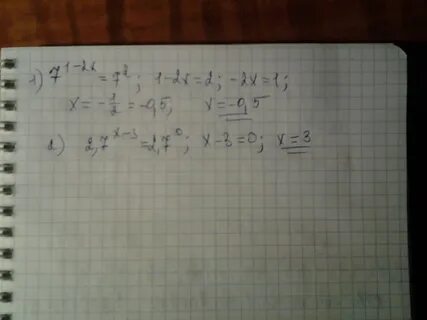 1) 7^(1-2x) = 7^2; 1-2x=2; -2x=1;
x = -1/2 = -0,5; x=-0,5
2) 2,7^(x-3) = 2,7^0; x-3=0; x=3